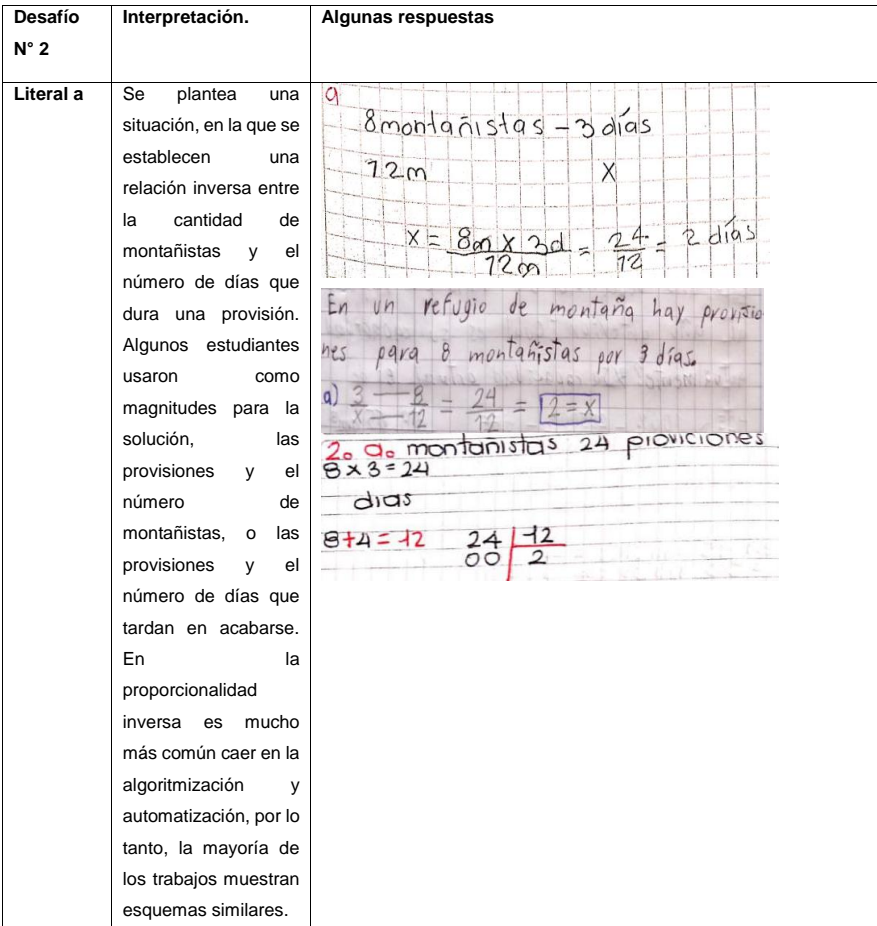 Desafío
N° 2
Interpretación.
Algunas respuestas
Literal a
Se plantea una
situación, en la que se
establecen una
relación inversa entre
la cantidad de
montañistas y el
número de días que
dura una provisión.
Algunos estudiantes
usaron como
magnitudes para la
solución, las
provisiones y el
número de
montañistas, o las
provisiones y el
número de días que
tardan en acabarse.
En la
proporcionalidad
inversa es mucho
más común caer en la
algoritmización y
automatización, por lo
tanto, la mayoría de
los trabajos muestran
esquemas similares.
a
8 montañistas - 3 días
12m X
X = 8m x 3d / 12m = 24 / 12 = 2 días
En un refugio de montaña hay provisio
nes para 8 montañistas por 3 días.
a) 3 — 8 / x — 12 = 24 / 12 = 2 = x
2. a. montañistas 24 proviciones
8 x 3 = 24
dias
8+4 = 12 24 | 12
00 2